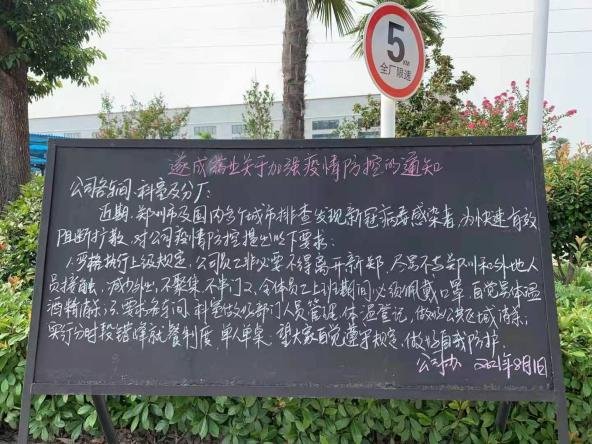 5
KM
全厂限速
遂成药业关于加强疫情防控的通知
公司各车间、科室及分厂：
近期，郑州市及国内多个城市排查发现新冠病毒感染者，为快速有效
阻断扩散，对公司疫情防控提出以下要求：
1、严格执行上级规定，公司员工非必要不得离开新郑，尽量不去郑州和外地人
员接触，减少外出，不聚集不串门；2、全体员工上班期间必须佩戴口罩，自觉量体温
酒精消杀；3、要求各车间、科室做好部门人员管理、体温登记，做好公共区域消杀；
实行分时段错峰就餐制度，单人单桌，望大家自觉遵守规定，做好自我防护。
公司办 2021年8月1日